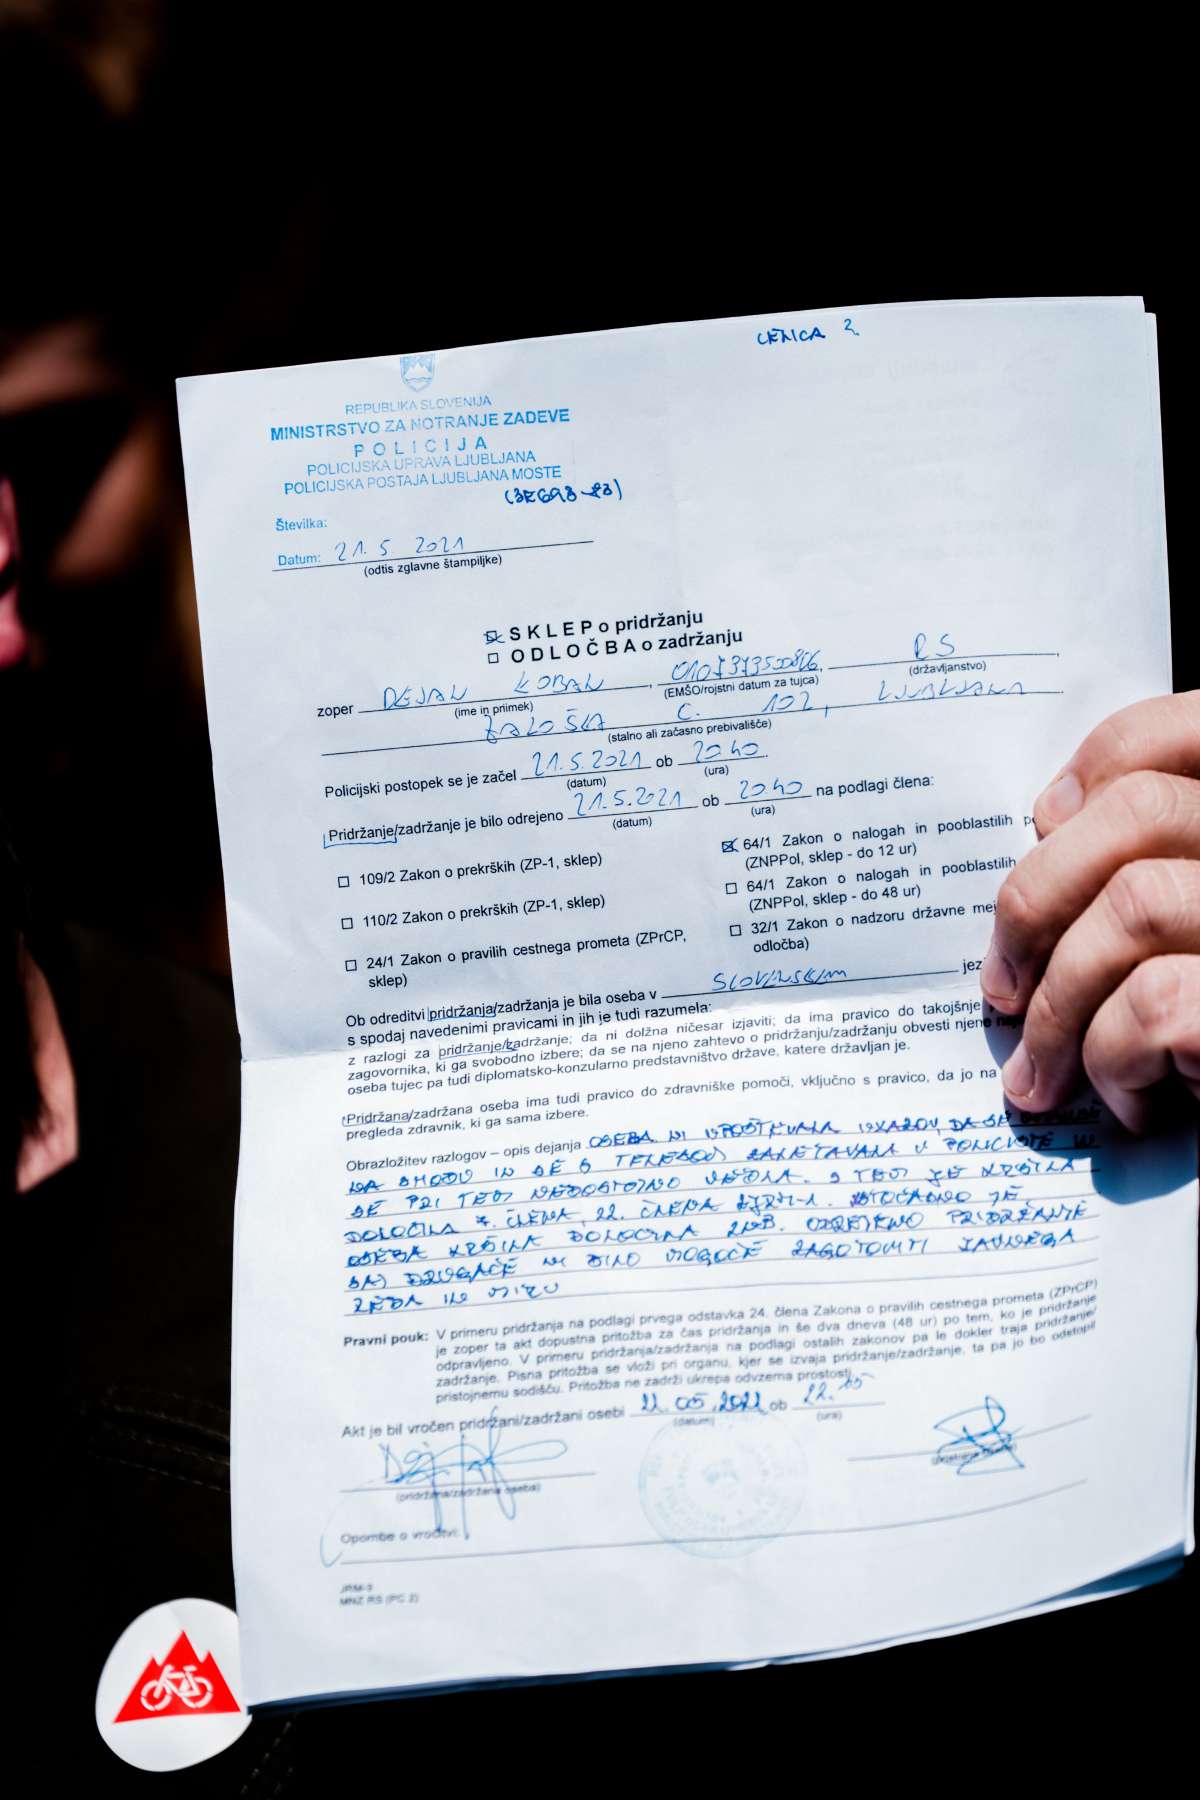 CELICA 2
REPUBLIKA SLOVENIJA
MINISTRSTVO ZA NOTRANJE ZADEVE
POLICIJA
POLICIJSKA UPRAVA LJUBLJANA
POLICIJSKA POSTAJA LJUBLJANA MOSTE
Številka:
Datum: 21. 5. 2021
(odtis zglavne štampiljke)
SKLEP o pridržanju
ODLOČBA o zadržanju
zoper DEJAN KOBAN, RS,
(ime in priimek) (EMŠO/rojstni datum za tujca) (državljanstvo)
ZALOŠKA C. 102, LJUBLJANA
(stalno ali začasno prebivališče)
Policijski postopek se je začel 21.5.2021 ob 20:40.
(datum) (ura)
Pridržanje/zadržanje je bilo odrejeno 21.5.2021 ob 20:40 na podlagi člena:
(datum) (ura)
109/2 Zakon o prekrških (ZP-1, sklep)
110/2 Zakon o prekrških (ZP-1, sklep)
24/1 Zakon o pravilih cestnega prometa (ZPrCP,
sklep)
64/1 Zakon o nalogah in pooblastilih
(ZNPPol, sklep - do 12 ur)
64/1 Zakon o nalogah in pooblastilih
(ZNPPol, sklep - do 48 ur)
32/1 Zakon o nadzoru državne
odločba)
Ob odreditvi pridržanja/zadržanja je bila oseba v SLOVENSKEM
s spodaj navedenimi pravicami in jih je tudi razumela:
z razlogi za pridržanje/zadržanje; da ni dolžna ničesar izjaviti; da ima pravico do takojšnje
zagovornika, ki ga svobodno izbere; da se na njeno zahtevo o pridržanju/zadržanju obvesti njene
oseba tujec pa tudi diplomatsko-konzularno predstavništvo države, katere državljan je.
Pridržana/zadržana oseba ima tudi pravico do zdravniške pomoči, vključno s pravico, da jo na
pregleda zdravnik, ki ga sama izbere.
Obrazložitev razlogov – opis dejanja OSEBA NI UPOŠTEVALA UKAZOV, DA SE
NA SHODU IN SE S TELESOM ZALETAVALA V POLICISTE IN
SE PRI TEM NEDOSTOJNO VEDLA. S TEM JE KRŠILA
DOLOČILA 7. ČLENA, 22. ČLENA ZJRM-1. ISTOČASNO JE
OSEBA KRŠILA DOLOČILA ZNB. ODREJENO PRIDRŽANJE
SAJ DRUGAČE NI BILO MOGOČE ZAGOTOVITI JAVNEGA
REDA IN MIRU
Pravni pouk: V primeru pridržanja na podlagi prvega odstavka 24. člena Zakona o pravilih cestnega prometa (ZPrCP)
je zoper ta akt dopustna pritožba za čas pridržanja in še dva dneva (48 ur) po tem, ko je pridržanje
odpravljeno. V primeru pridržanja/zadržanja na podlagi ostalih zakonov pa le dokler traja pridržanje/
zadržanje. Pisna pritožba se vloži pri organu, kjer se izvaja pridržanje/zadržanje, ta pa jo bo odstopil
pristojnemu sodišču. Pritožba ne zadrži ukrepa odvzema prostosti.
Akt je bil vročen pridržani/zadržani osebi 21.05.2021 ob
(datum) (ura)
(pridržana/zadržana oseba)
Opombe o vročitvi:
JRM-3
MNZ RS (PC 2)